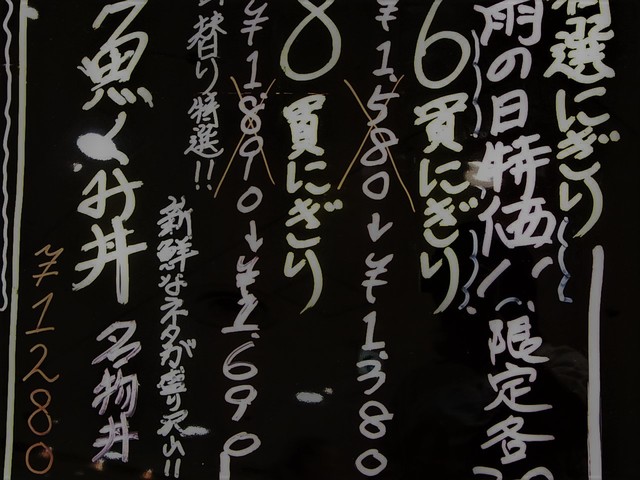 選にぎり
雨の日特価!! 限定各
6貫にぎり
¥1580→¥1380
8貫にぎり
¥1890→¥1690
替り特選!!
新鮮なネタが盛り沢山!!
魚くみ丼 名物丼
¥1280